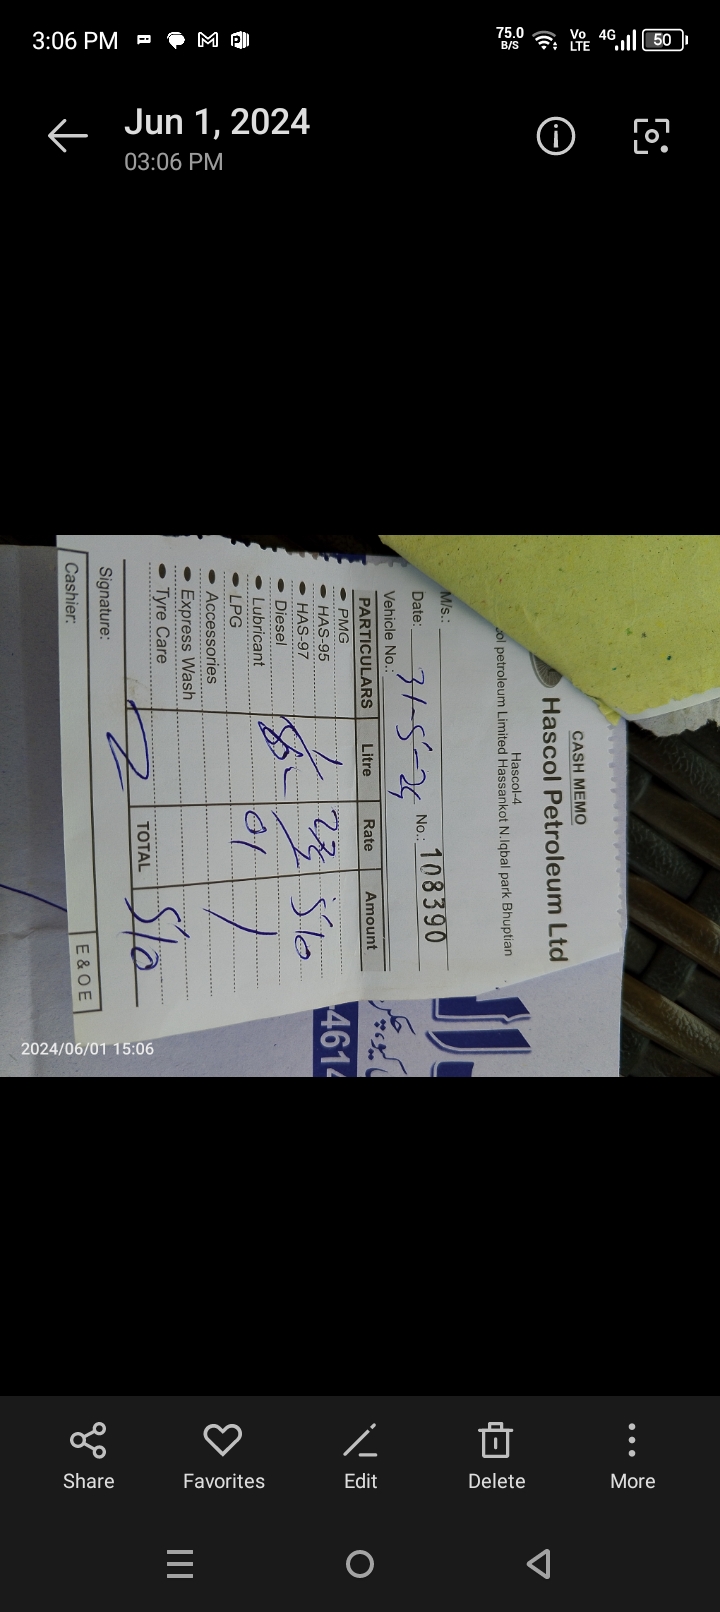 3:06 PM
75.0 B/S Vo LTE 4G 50
Jun 1, 2024
03:06 PM
CASH MEMO
Hascol Petroleum Ltd
Hascol-4
ol petroleum Limited Hassankot N.Iqbal park Bhuptian
M/s.:
Date: 31-5-24 No.: 108390
Vehicle No.:
PARTICULARS Litre Rate Amount
PMG
HAS-95
HAS-97 510
Diesel
Lubricant
LPG 01
Accessories
Express Wash
Tyre Care
TOTAL 510
Signature:
Cashier: E & O E
4614
2024/06/01 15:06
Share Favorites Edit Delete More